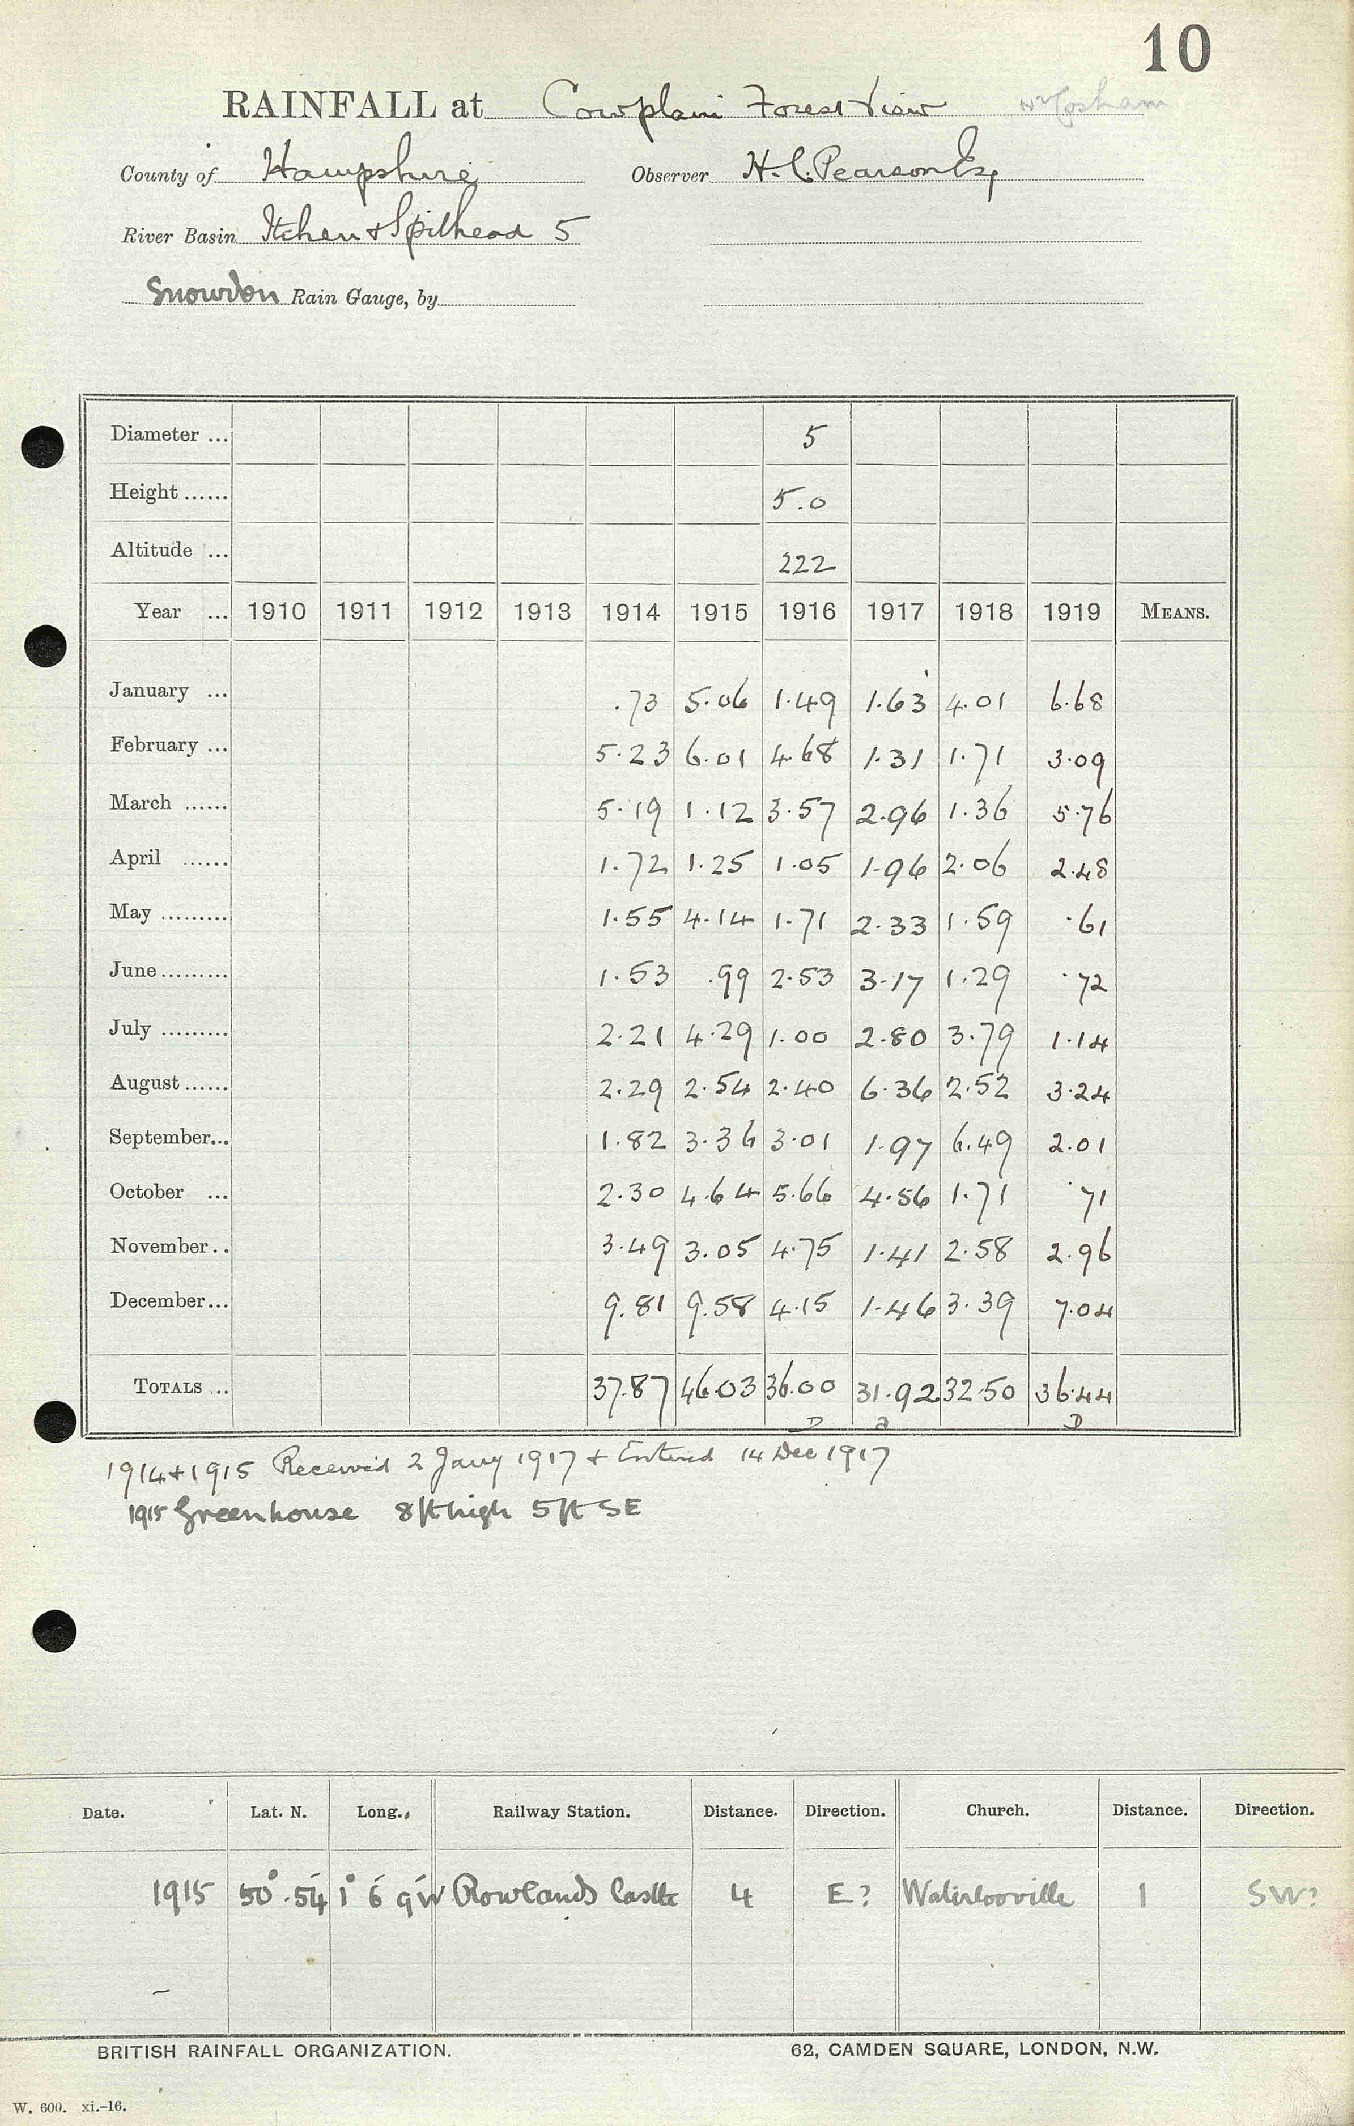 10
RAINFALL at Cowplain Forest View Nr Cosham
County of Hampshire Observer H. C. Pearson Esq
River Basin Itchen & Spithead 5
Snowdon Rain Gauge, by
Diameter ... 5
Height ...... 5.0
Altitude ... 222
Year ... 1910 1911 1912 1913 1914 1915 1916 1917 1918 1919 MEANS.
January ... .73 5.06 1.49 1.63 4.01 6.68
February ... 5.23 6.01 4.68 1.31 1.71 3.09
March ...... 5.19 1.12 3.57 2.96 1.36 5.76
April ...... 1.72 1.25 1.05 1.96 2.06 2.48
May ......... 1.55 4.14 1.71 2.33 1.59 .61
June ......... 1.53 .99 2.53 3.17 1.29 .72
July ......... 2.21 4.29 1.00 2.80 3.79 1.14
August ...... 2.29 2.54 2.40 6.36 2.52 3.24
September... 1.82 3.36 3.01 1.97 6.49 2.01
October ... 2.30 4.64 5.66 4.56 1.71 .71
November .. 3.49 3.05 4.75 1.41 2.58 2.96
December... 9.81 9.58 4.15 1.46 3.39 7.04
TOTALS ... 37.87 46.03 36.00 31.92 32.50 36.44
D a D
1914 & 1915 Received 2 Jany 1917 & Entered 14 Dec 1917
1915 Greenhouse 8ft high 5ft SE
Date. Lat. N. Long. Railway Station. Distance. Direction. Church. Distance. Direction.
1915 50° 54' 1° 6' 9"W Rowlands Castle 4 E? Waterlooville 1 SW?
BRITISH RAINFALL ORGANIZATION. 62, CAMDEN SQUARE, LONDON, N.W.
W. 600. xi.-16.